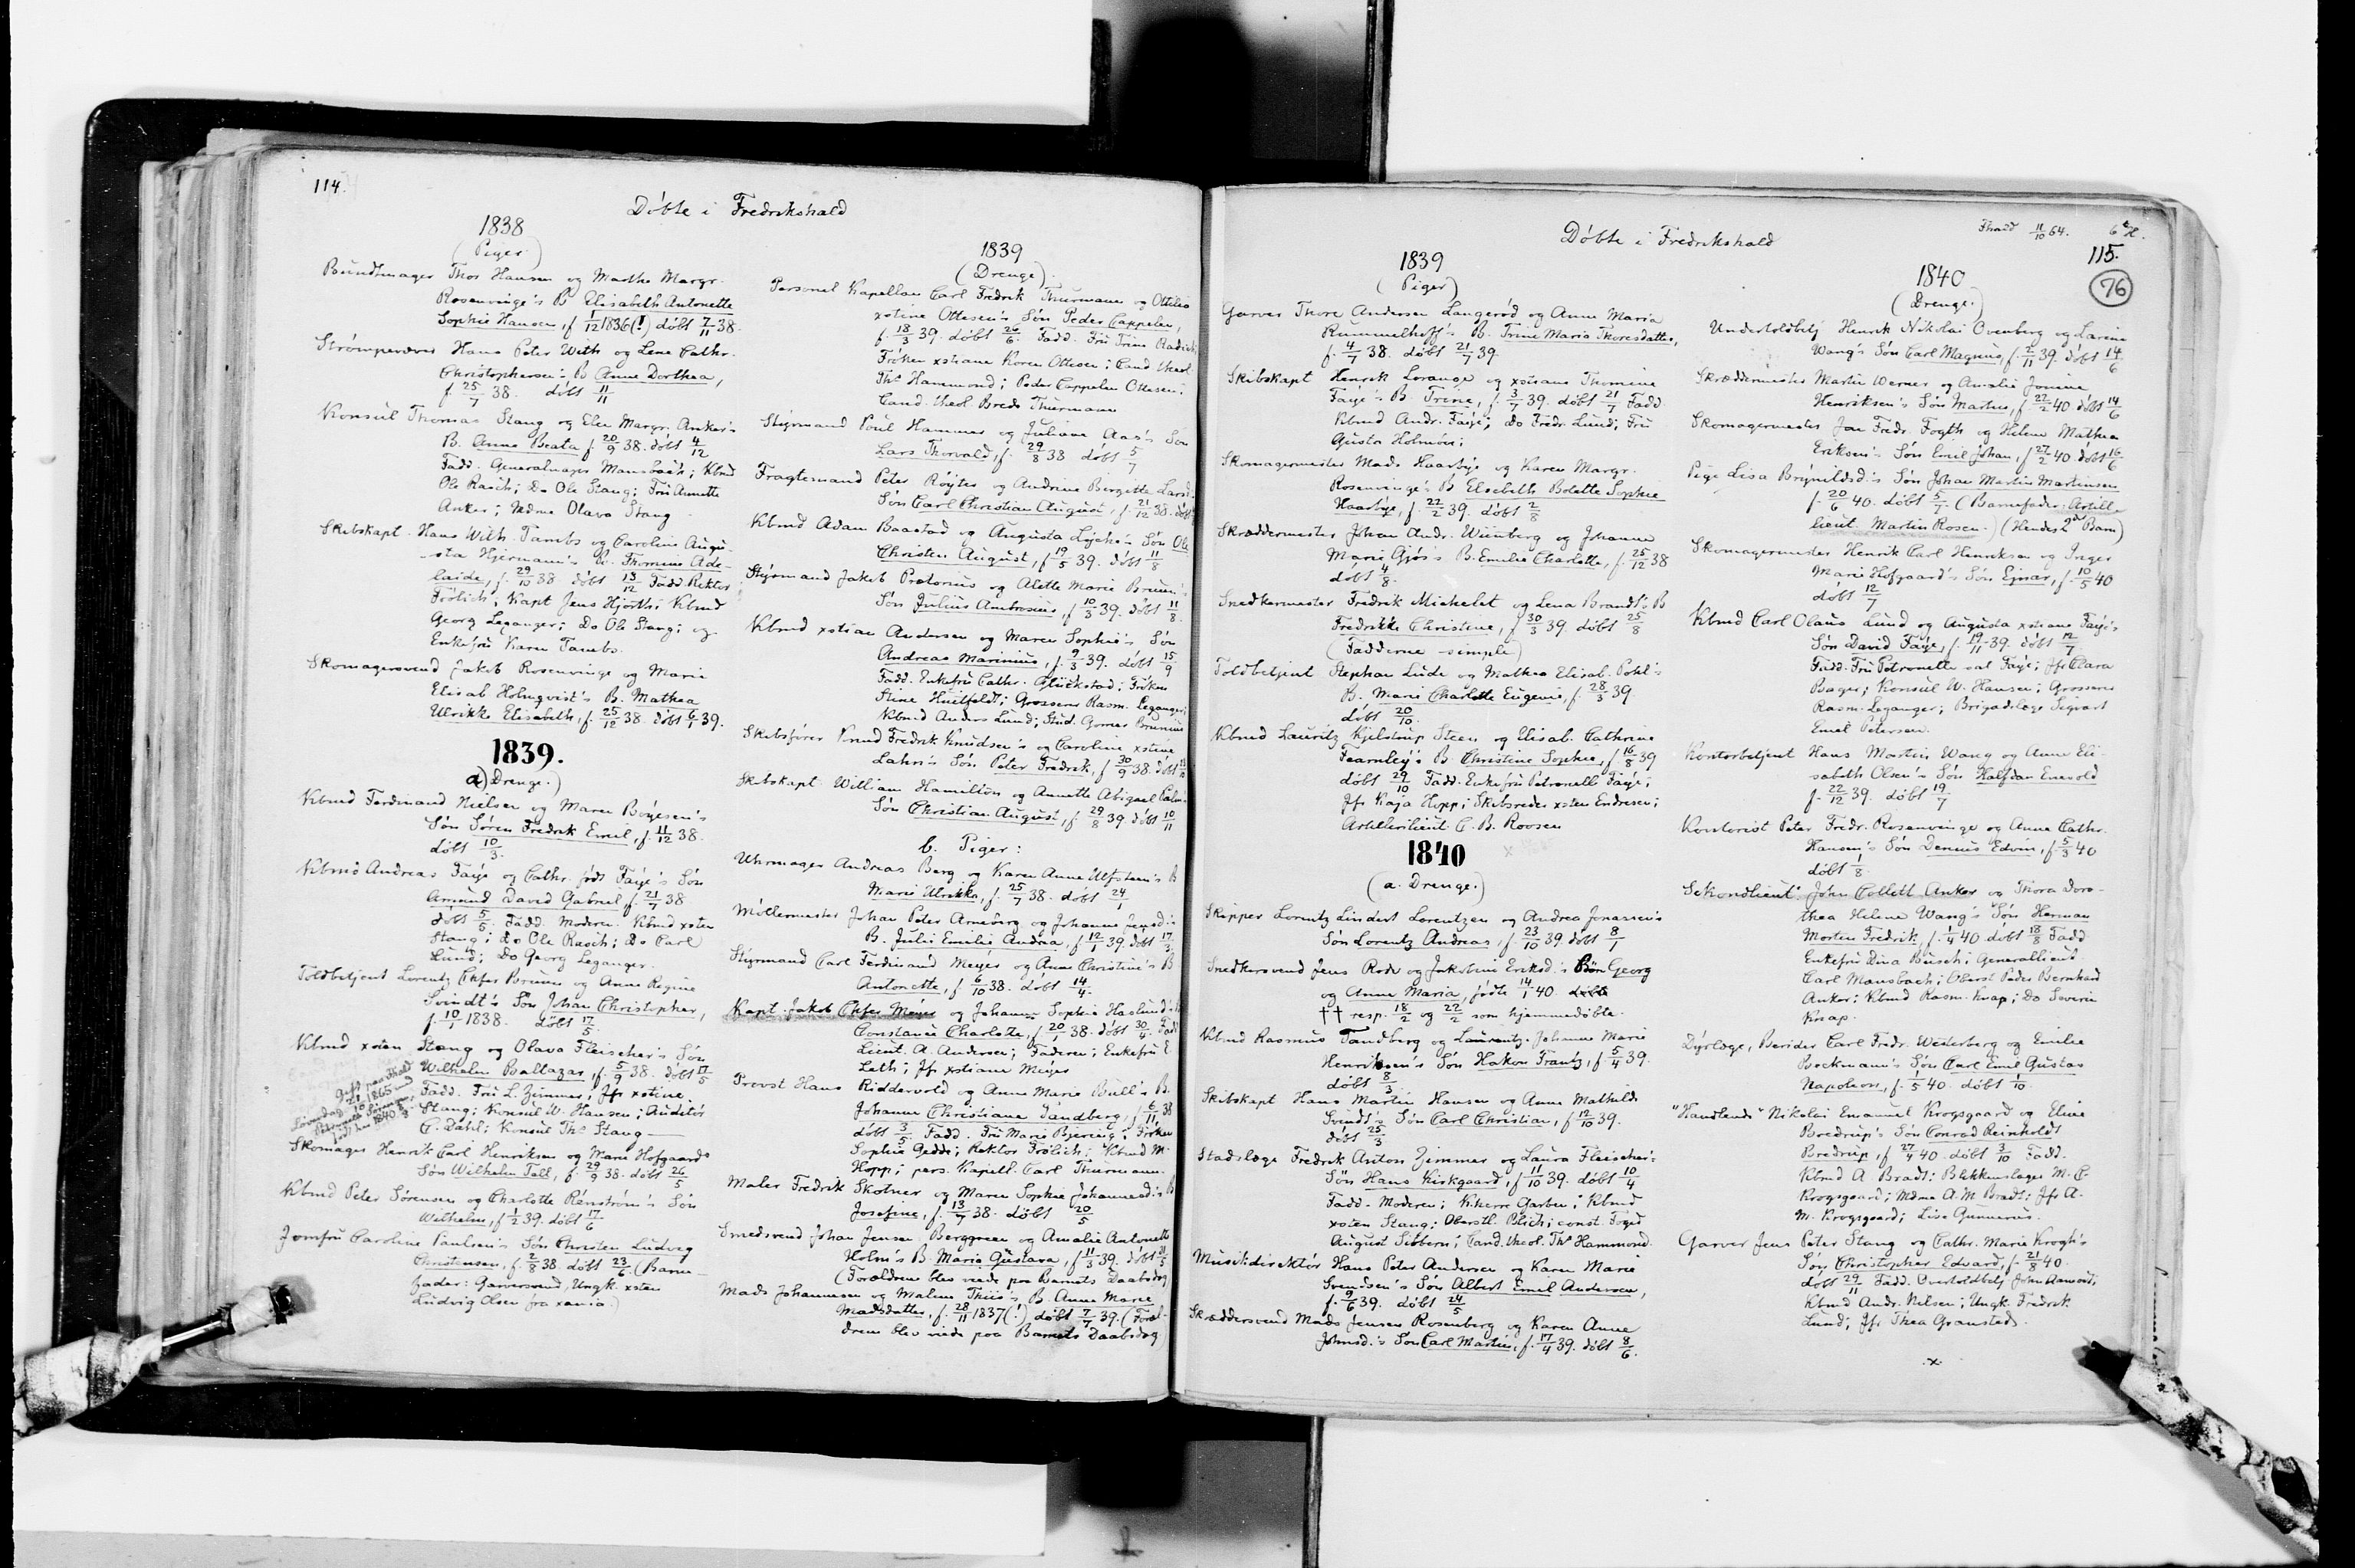 114.
Döbte i Fredrikshald
1838
(Piger)
Bundtmager Thos Hansen og Marthe Margr.
Rosenvinge's B. Elisabeth Antonette
Sophie Hansen, f. 1/12 1836(!) döbt 7/11 38.
Strømpevæver Hans Peter With og Lene Cathr.
Christophersen's B. Anne Dorthea,
f. 25/7 38. döbt 11/11
Konsul Thomas Stang og Elen Margr. Anker's
B. Anna Beata f. 20/9 38. döbt 4/12
Fadd. Generalmajor Mansbach; Kbmd
Ole Rasch; Do Ole Stang; Frü Annette
Anker; Mdme Olava Stang
Skibskapt. Hans With Tambs og Caroline Augu-
sta Hjermann's B. Thomine Ade-
laide, f. 29/10 38 döbt 13/12 Fadd. Rektor
Frölich; Kapt Jens Hjorth; Kbmd
Georg Leganger; Do Ole Stang; og
Enkefrü Karen Tambs.
Skomagersvend Jakob Rosenvinge og Marie
Elisab Holmqvist's B. Mathea
Ulrikke Elisabeth, f. 25/12 38. döbt 6/1 39.
1839.
a) Drenge.)
Kbmd Ferdinand Nielsen og Maren Böyesen's
Sön Sören Fredrik Emil, f. 11/12 38.
döbt 10/3.
Kbmd Andreas Faye og Cathr. født Faye's Sön
Amund David Gabriel f. 21/7 38
döbt 5/5. Fadd. Moderen Kbmd xsten
Stang; Do Ole Rasch; Do Carl
Lund; Do Georg Leganger.
Toldbetjent Lorentz Chfer Bruun og Anne Regine
Svindt's Sön Johan Christopher,
f. 10/1 1838. döbt 17/5
Kbmd xsten Stang og Olava Fleischer's Sön
Wilhelm Baltazar, f. 5/9 38. döbt 17/5
Fadd. Frü L. Zimmer; Jfr xstine
Stang; Konsul W. Hansen; Auditör
C. Dahl; Konsul Ths Stang
Gift paa Fhald
Löverdag 21/10 1865 med
Petronelle Sörensen,
født her 1840
Skomager Henrik Carl Henriksen og Marie Hofgaard's
Sön Wilhelm Tell, f. 29/9 38. döbt 26/5
Kbmd Peter Sörensen og Charlotte Renström's Sön
Wilhelm, f. 1/2 39. döbt 17/6
Jomfru Caroline Paulsen's Sön Christen Ludvig
Christensen, f. 2/8 38. döbt 23/6. (Barne-
fader: Garversvend, Ungk. xsten
Ludvig Olsen fra xania.)
1839
(Drenge)
Personel Kapellan Carl Fredrik Thurmann og Ottilia
xstine Ottesen's Sön Peder Cappelen,
f. 18/3 39. döbt 26/6. Fadd. Frü Trine Radich;
Fröken xstiane Koren Ottesen; Cand theol.
Ths Hammond; Peder Cappelen Ottesen;
Cand. theol Breda Thurmann
Styrmand Poul Hammer og Juliane Aas's Sön
Lars Thorvald, f. 29/8 38 döbt 5/7
Fragtemand Peter Röyter og Andrine Bergette Larsd.
Sön Carl Christian August, f. 21/12 38. döbt
Kbmd Adam Baastad og Augusta Lyche's Sön Ole
Christen August, f. 19/5 39. döbt 11/8
Styrmand Jakob Prætorius og Alette Marie Bruun's
Sön Julius Ambrosius, f. 10/3 39. döbt 11/8.
Kbmd xstian Andersen og Maren Sophie's Sön
Andreas Marinius, f. 9/3 39. döbt 15/9
Fadd. Enkefrü Cathr. Glückstad; Fröken
Stine Huitfeldt; Grosserer Rasm. Leganger;
Kbmd Anders Lund; Stud. Gorner Brunius
Skibsförer Knud Fredrik Knudsen's og Caroline xstine
Lahn's Sön Peter Fredrik, f. 30/9 38. döbt
Skibskapt. William Hamilton og Annette Abigael
Sön Christian August, f. 29/8 39 döbt 10/11
b. Piger:
Uhrmager Andreas Berg og Karen Anne Ulfsteen's B
Marie Ulrikke, f. 25/7 38. döbt 24/1
Möllermester Johan Peter Arneberg og Johanne Jensd.'s
B. Julie Emilie Andrea, f. 12/1 39. döbt 17/3
Styrmand Carl Ferdinand Meyer og Anne Christine's B
Antonette, f. 6/10 38. döbt 14/4.
Kapt. Jakob Chfer Meyer og Johanne Sophie Haslund's
Constance Charlotte, f. 20/1 38. döbt 30/4. Fadd
Lieut. A. Andersen; Faderen; Enkefrü E.
Leth; Jfr xstiane Meyer
Provst Hans Riddervold og Anne Marie Bull's B.
Johanne Christiane Tandberg, f. 6/11 38
döbt 3/5 Fadd. Frü Marie Bjering; Fröken
Sophie Gedde; Rektor Frölich; Kbmd M.
Hopp; pers. Kapell. Carl Thurmann.
Maler Fredrik Skotner og Maren Sophie Johannesd.'s B
Josefine, f. 13/7 38. döbt 20/5
Smedsvend Johan Jensen Berggreen og Amalie Antonette
Holm's B. Maria Gustava, f. 11/3 39. döbt 21/5
(Forældrene blev viede paa Barnets Daabsdag)
Mads Johannesen og Malene Thiis's B. Anne Marie
Madsdatter, f. 28/11 1837(!) döbt 7/7 39. (Foræl-
drene blev viede paa Barnets Daabsdag)
Döbte i Fredrikshald
Fhald 11/10 64.
6te H.
115.
76
1839
(Piger)
Garver Thore Andersen Langeröd og Anne Maria
Rummelhoff's B. Trine Maria Thoresdatter,
f. 4/7 38. döbt 21/7 39.
Skibskapt Henrik Lorange og xstiane Thomine
Faye's B. Trine, f. 3/7 39. döbt 21/7 Fadd
Kbmd Andr. Faye; Do Fredr. Lund; Frü
Gusta Holmboe;
Skomagermester Mads Haarbye og Karen Margr.
Rosenvinge's B Elsebeth Bolette Sophie
Haarbye, f. 22/2 39. döbt 2/8
Skræddermester Johan Andr. Wiinberg og Johanne
Marie Gjös's B. Emilie Charlotte, f. 25/12 38
döbt 4/8.
Snedkermester Fredrik Michelet og Lena Brandt's B
Fredrikke Christine, f. 30/3 39 döbt 25/8
(Fadderne simple)
Toldbetjent Stephan Lude og Mathea Elisab. Pohl's
B. Marie Charlotte Eugenie, f. 28/3 39.
döbt 20/10.
Kbmd Lauritz Kjelstrup Steen og Elisab. Cathrine
Fearnley's B. Christine Sophie, f. 16/8 39
döbt 29/10 Fadd. Enkefrü Petronelle Faye;
Jfr Kaja Hopp; Skibsreder xsten Endresen;
Artillerilieut. C. B. Roosen
1840
(a. Drenge.)
Skipper Lorentz Lindert Lorentzen og Andrea Jonassen's
Sön Lorentz Andreas, f. 23/10 39. döbt 8/1
Snedkersvend Jens Rode og Jakobine Eriksd.'s Börn Georg
og Anne Maria, födte 14/1 40. döbte
†† resp. 18/2 og 22/2 som hjemmedöbte.
Kbmd Rasmus Tandberg og Laurentz. Johanne Marie
Henriksen's Sön Hakon Frantz, f. 5/4 39.
döbt 8/3
Skibskapt Hans Martin Hansen og Anne Mathilde
Svindt's Sön Carl Christian, f. 12/10 39.
döbt 25/3
Stadslæge Fredrik Anton Zimmer og Laura Fleischer's
Sön Hans Kirkgaard, f. 11/10 39. döbt 10/4
Fadd. Moderen; K.herre Garben; Kbmd
xsten Stang; Oberstl. Blich; const. Foged
August Sibbern; Cand. theol. Ths Hammond.
Musikdirektör Hans Peter Andersen og Karen Marie
Svendsen's Sön Albert Emil Andersen,
f. 9/6 39. döbt 24/5
Skræddersvend Mads Jensen Rosenberg og Karen Anne
Johnsd.'s Sön Carl Martin, f. 17/4 39. döbt 8/6.
1840
(Drenge.)
Undertoldbetj Henrik Nikolai Ovenberg og Larine
Wang's Sön Carl Magnus, f. 2/11 39. döbt 14/6
Skræddermester Martin Werner og Amalie Jonine
Henriksen's Sön Martin, f. 22/2 40. döbt 14/6
Skomagermester Jan Fredr. Fogth og Helene Mathea
Eriksen's Sön Emil Johan, f. 27/2 40. döbt 16/6
Pige Lisa Brynildsd.'s Sön Johan Martin Martinsen
f. 20/6 40. döbt 5/7 (Barnefader: Artill-
lieut. Martin Rosen.) (Hendes 2det Barn)
Skomagermester Henrik Carl Henriksen og Inger
Marie Hofgaard's Sön Ejnar, f. 10/5 40
döbt 12/7
Kbmd Carl Olaus Lund og Augusta xstiane Faye's
Sön David Faye, f. 19/11 39. döbt 12/7
Fadd. Frü Petronelle sal Faye; Jfr Clara
Bager; Konsul W. Hansen; Grosserer
Rasm. Leganger; Brigadelæge Sigvart
Emil Petersen.
Kontorbetjent Hans Martin Wang og Anne Eli-
sabeth Olsen's Sön Halfdan Enevold
f. 22/12 39. döbt 19/7
Kontorist Peter Fredr. Rosenvinge og Anne Cathr.
Hansen's Sön Dennis Edvin, f. 5/3 40
döbt 1/8.
Sekondlieut. John Collett Anker og Thora Doro-
thea Helene Wang's Sön Herman
Morten Fredrik, f. 1/4 40. döbt 18/8 Fadd
Enkefrü Dina Busch; Generallieut
Carl Mansbach; Oberst Peder Bernhard
Anker; Kbmd Rasm. Knap; Do Severin
Knap.
Dyrlæge, Berider Carl Fredr. Westerberg og Emilie
Bockmann's Sön Carl Emil Gustav
Napoleon, f. 1/5 40. döbt 1/10.
"Handlende" Nikolai Emanuel Krogsgaard og Eline
Bredrup's Sön Conrad Reinholdt
Bredrup, f. 27/4 40. döbt 3/10 Fadd.
Kbmd A Bradt; Blikkenslager M. C
Krogsgaard; Mdme A. M Bradt; Jfr A.
M. Krogsgaard; Lise Gunnerus.
Garver Jens Peter Stang og Cathr. Marie Krogh's
Sön Christopher Edvard, f. 21/8 40.
döbt 29/11 Fadd. Overtoldbetj John Aamodt;
Kbmd Andr. Nilsen; Ungk. Fredrik
Lund; Jfr Thea Granstad.
.x.